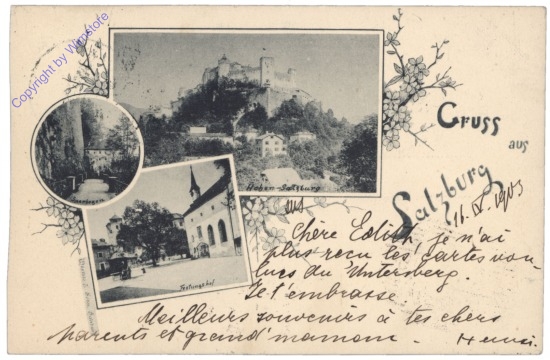 Copyright by Wimstofe
Gruss
aus
Salzburg
Hohen-Salzburg
Festungshof
16. IX. 1903
Chère Edith, je n'ai
plus reçu les cartes vou-
lues du Untersberg.
Je t'embrasse
Meilleurs souvenirs à tes chers
parents et grand'maman.